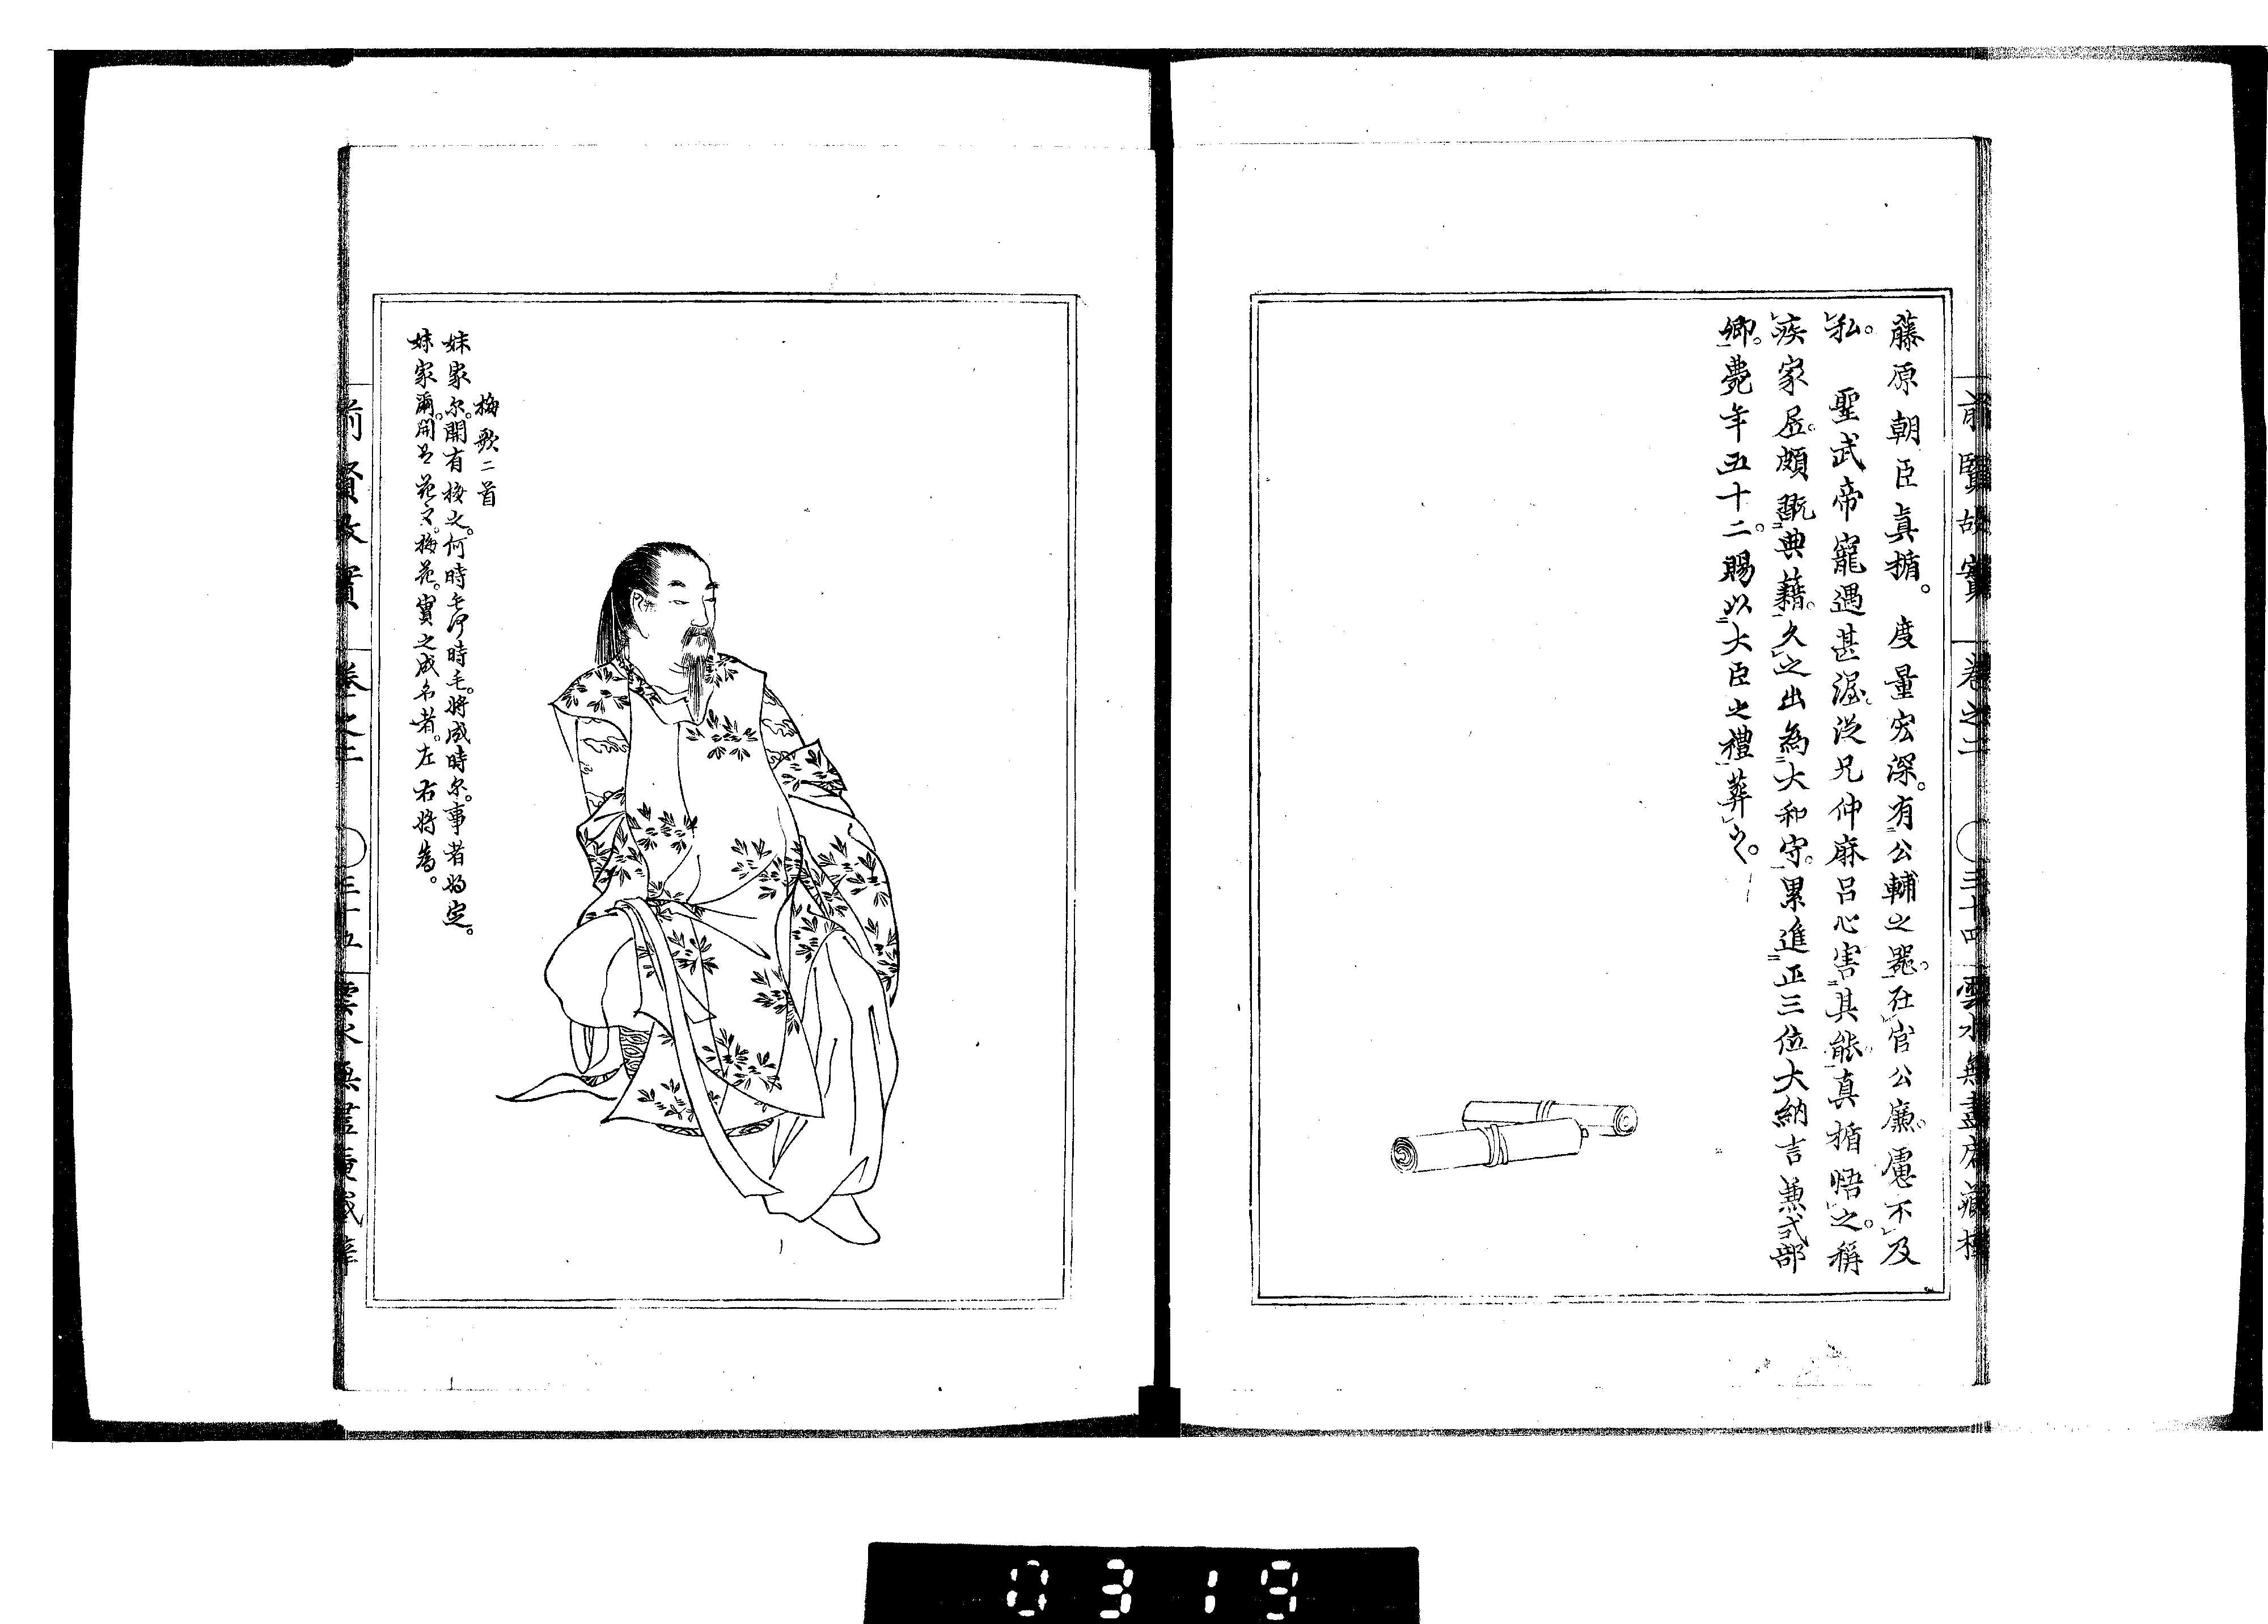 前賢故實 卷之二 〇三十四 雲水無盡庵藏梓
藤原朝臣真楯。度量宏深。有公輔之器。在官公廉。慮不及
私。聖武帝寵遇甚渥。從兄仲麻呂心害其能。真楯悟之。稱
疾家居。頗翫典藉。久之出為大和守。累進正三位大納言兼式部
卿。薨年五十二。賜以大臣之禮葬之。
梅歌二首
妹家尔。開有梅之。何時毛何時毛。將成時尔。事者將定。
妹家爾。開有花之。梅花。實之成名者。左右將為。
前賢故實 卷之二 〇三十五 雲水無盡庵藏梓
0319